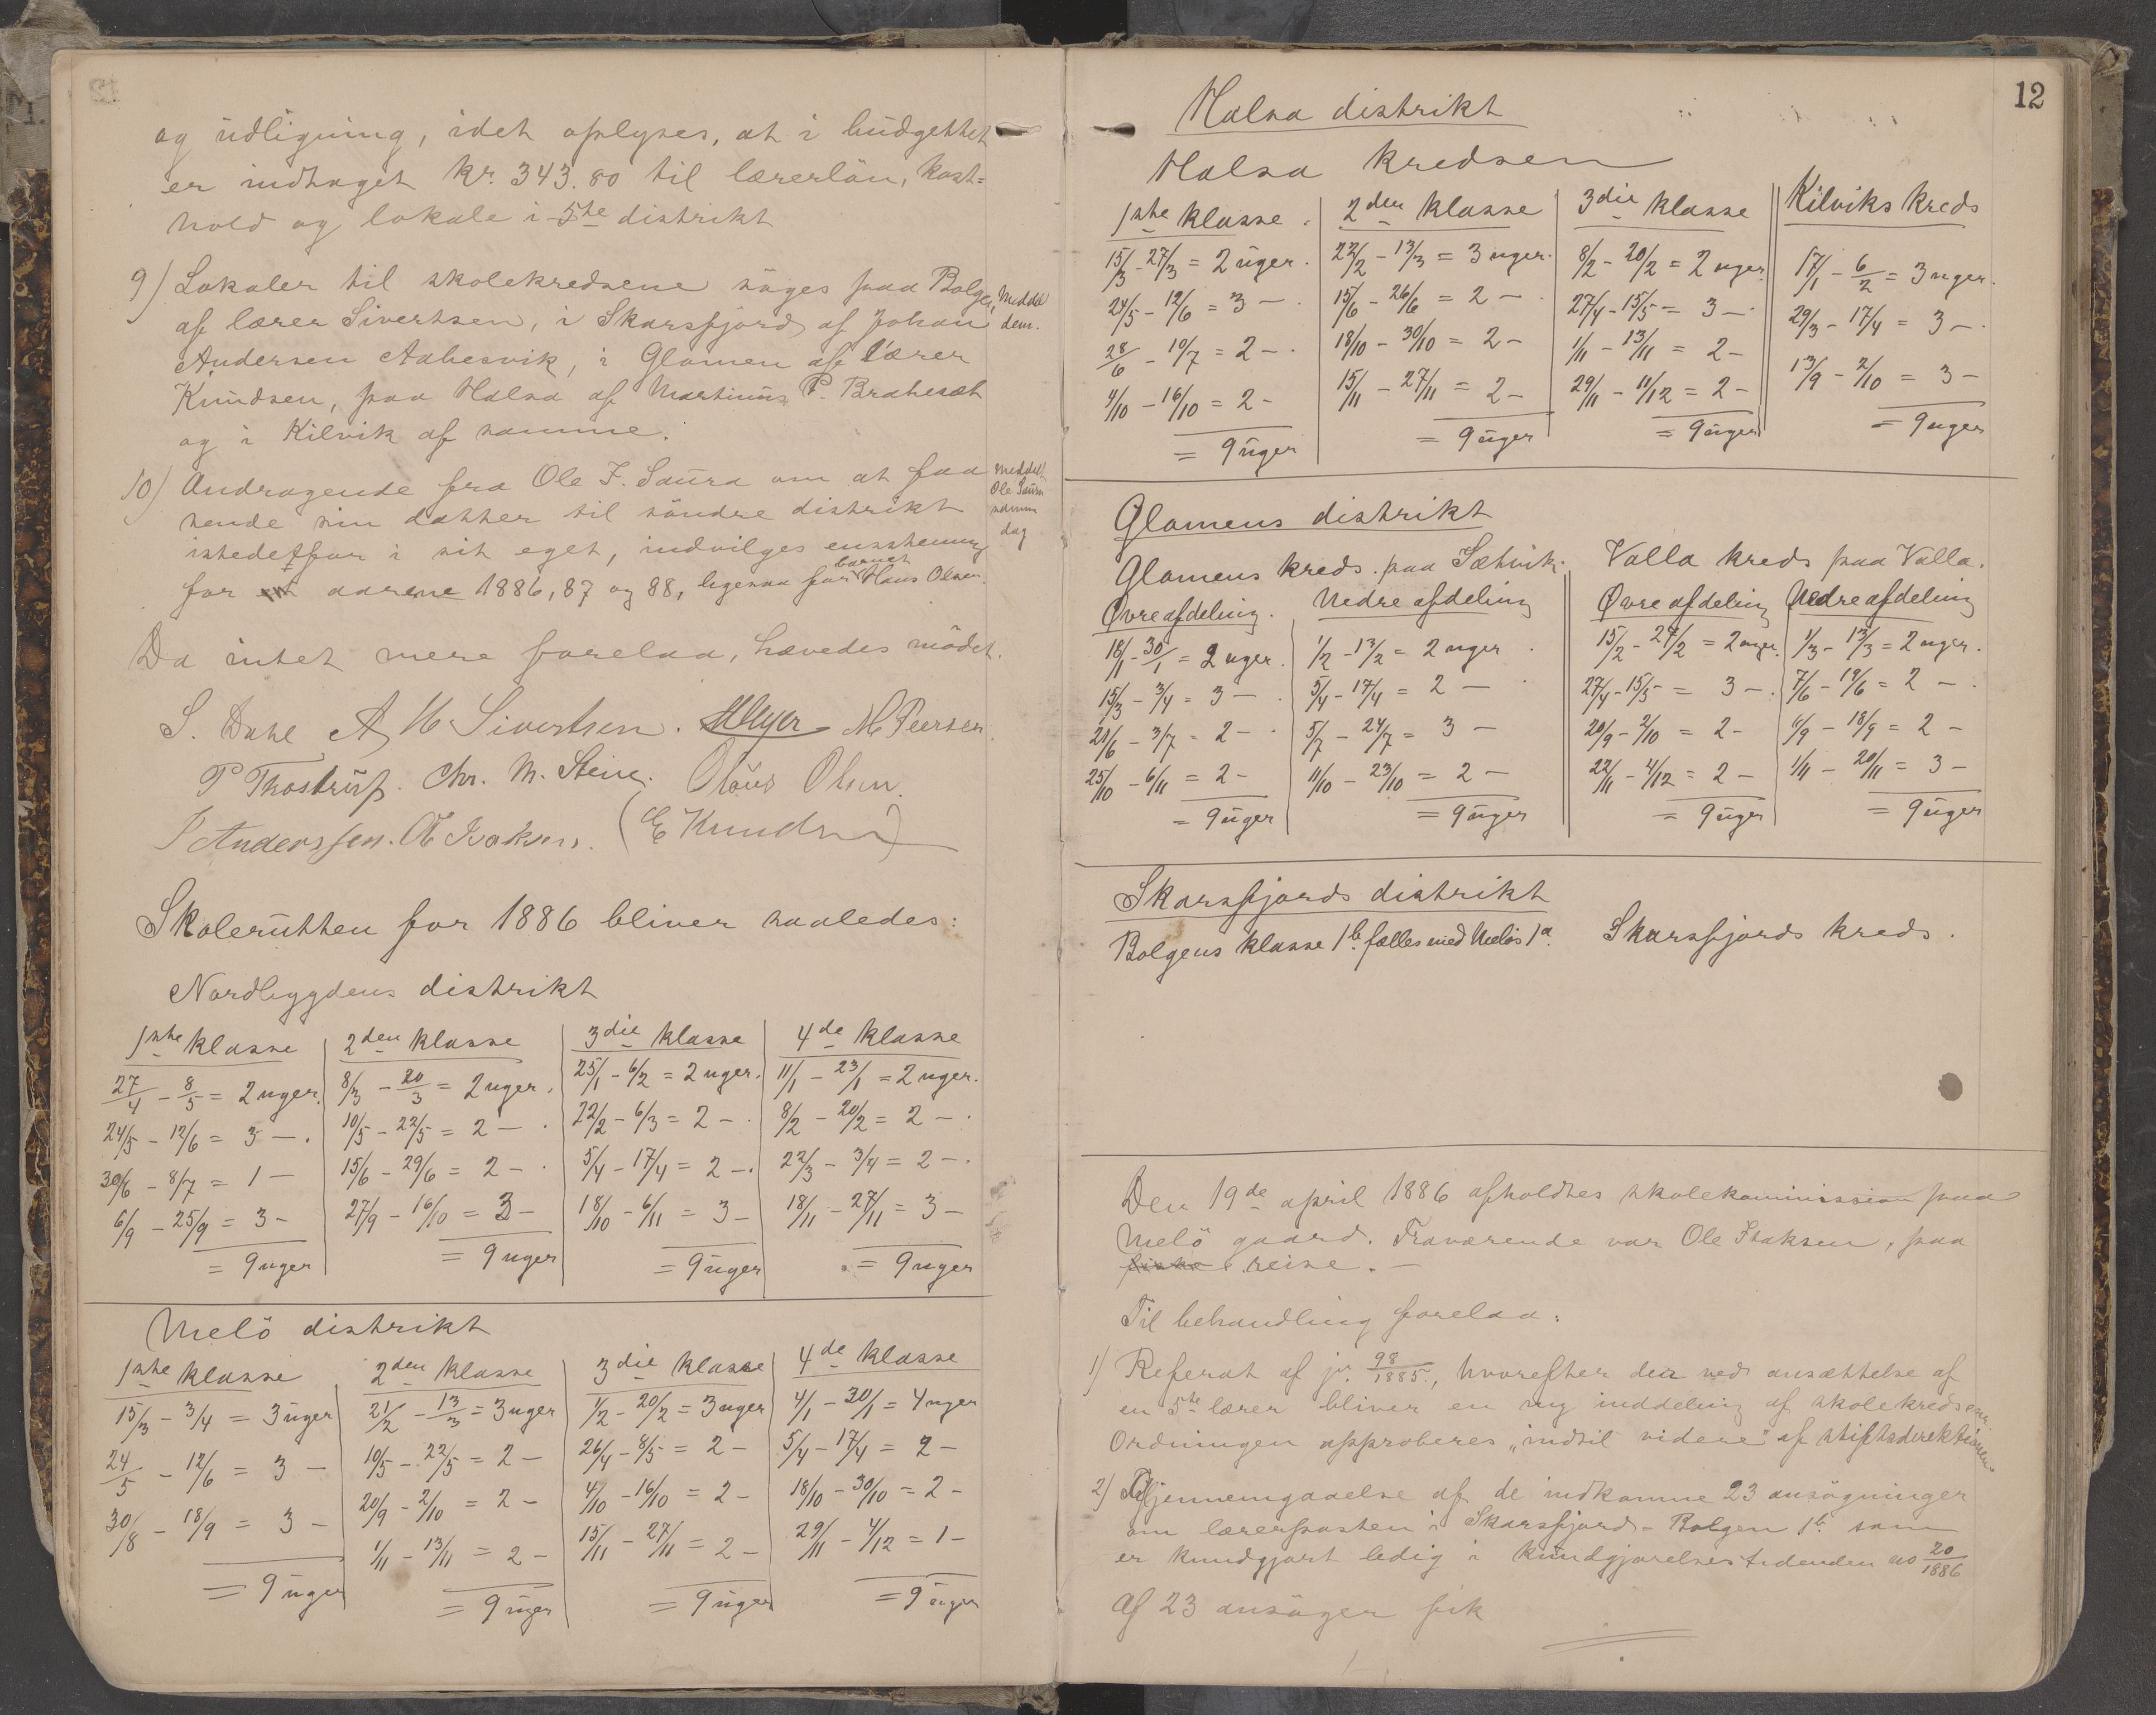 og udligning, idet oplyses, at i budgettet
er indtaget kr. 343.80 til lærerlön, kost=
hold og lokale i 5te distrikt
9) Lokaler til skolekredsene söges paa Bolgen
af lærer Sivertsen, i Skarsfjord af Johan
Andersen Aabesvik, i Glomen af lærer
Knudsen, paa Halsa af Martinus P. Brahesæt
og i Kilvik af samme.
Meddel
dem.
10) Andragende fra Ole F. Saura om at faa
sende sin datter til söndre distrikt
istedetfor i sit eget, indvilges enstemmig
for aarene 1886, 87 og 88, ligesaa for barnet Hans Olsen.
Meddelt
Ole Saura
samme
dag
Da intet mere forelaa, hævedes mödet.
S. Dahl A M Sivertsen. Meyer M Peersen.
P Thostrup. Chr. M. Stene. Olaus Olsen.
P Anderssen. O Isaksen. (E Knudsen)
Skoleruten for 1886 bliver saaledes:
Nordbygdens distrikt
1ste klasse 2den klasse 3die klasse 4de klasse
27/4 - 8/5 = 2 uger. 8/3 - 20/3 = 2 uger. 25/1 - 6/2 = 2 uger. 11/1 - 23/1 = 2 uger.
24/5 - 12/6 = 3 - . 10/5 - 22/5 = 2 - . 22/2 - 6/3 = 2 - . 8/2 - 20/2 = 2 - .
30/6 - 8/7 = 1 - 15/6 - 29/6 = 2 - . 5/4 - 17/4 = 2 - . 22/3 - 3/4 = 2 - .
6/9 - 25/9 = 3 - 27/9 - 16/10 = 3 - 18/10 - 6/11 = 3 - 18/11 - 27/11 = 3 -
= 9 uger = 9 uger = 9 uger = 9 uger
Melö distrikt
1ste klasse 2den klasse 3die klasse 4de klasse
15/3 - 3/4 = 3 uger 21/2 - 13/3 = 3 uger 1/2 - 20/2 = 3 uger 4/1 - 30/1 = 4 uger
24/5 - 12/6 = 3 - 10/5 - 22/5 = 2 - 26/4 - 8/5 = 2 - 5/4 - 17/4 = 2 -
30/8 - 18/9 = 3 - 20/9 - 2/10 = 2 - 4/10 - 16/10 = 2 - 18/10 - 30/10 = 2 -
1/11 - 13/11 = 2 - 15/11 - 27/11 = 2 - 29/11 - 4/12 = 1 -
= 9 uger = 9 uger = 9 uger = 9 uger
12
Halsa distrikt
Halsa kredsen
1ste klasse. 2den klasse 3die klasse Kilviks kreds
15/3 - 27/3 = 2 uger. 22/2 - 13/3 = 3 uger. 8/2 - 20/2 = 2 uger 17/1 - 6/2 = 3 uger.
24/5 - 12/6 = 3 - . 15/6 - 26/6 = 2 - . 27/4 - 15/5 = 3 - . 29/3 - 17/4 = 3 - .
28/6 - 10/7 = 2 - . 18/10 - 30/10 = 2 - 1/11 - 13/11 = 2 - 13/9 - 2/10 = 3 -
4/10 - 16/10 = 2 - 15/11 - 27/11 = 2 - 29/11 - 11/12 = 2 -
= 9 uger = 9 uger = 9 uger = 9 uger
Glomens distrikt
Glomens kreds. paa Sætvik. Valla kreds paa Valla.
Øvre afdeling. Nedre afdeling Øvre afdeling Nedre afdeling
18/1 - 30/1 = 2 uger. 1/2 - 13/2 = 2 uger. 15/2 - 27/2 = 2 uger. 1/3 - 13/3 = 2 uger.
15/3 - 3/4 = 3 - 5/4 - 17/4 = 2 - . 27/4 - 15/5 = 3 - . 7/6 - 19/6 = 2 - .
21/6 - 3/7 = 2 - . 5/7 - 24/7 = 3 - 20/9 - 2/10 = 2 - 6/9 - 18/9 = 2 -
25/10 - 6/11 = 2 - 11/10 - 23/10 = 2 - 22/11 - 4/12 = 2 - 1/11 - 20/11 = 3 -
= 9 uger = 9 uger = 9 uger = 9 uger
Skarsfjords distrikt
Bolgens klasse 1b. fælles med Melös 1a. Skarsfjords kreds.
Den 19de april 1886 afholdtes skolekommission paa
Melö gaard. Fraværende var Ole Isaksen, paa
reise. -
Til behandling forelaa:
1) Referat af jr. 98/1885., hvorefter der ved ansættelse af
en 5te lærer bliver en ny inddeling af skolekredsene
Ordningen approberes „indtil videre" af stiftsdirektionen
2) Gjennemgaaelse af de indkomne 23 ansögninger
om lærerposten i Skarsfjord - Bolgen 1b. som
er kundgjort ledig i kundgjørelsestidenden no 20/1886
Af 23 ansöger fik